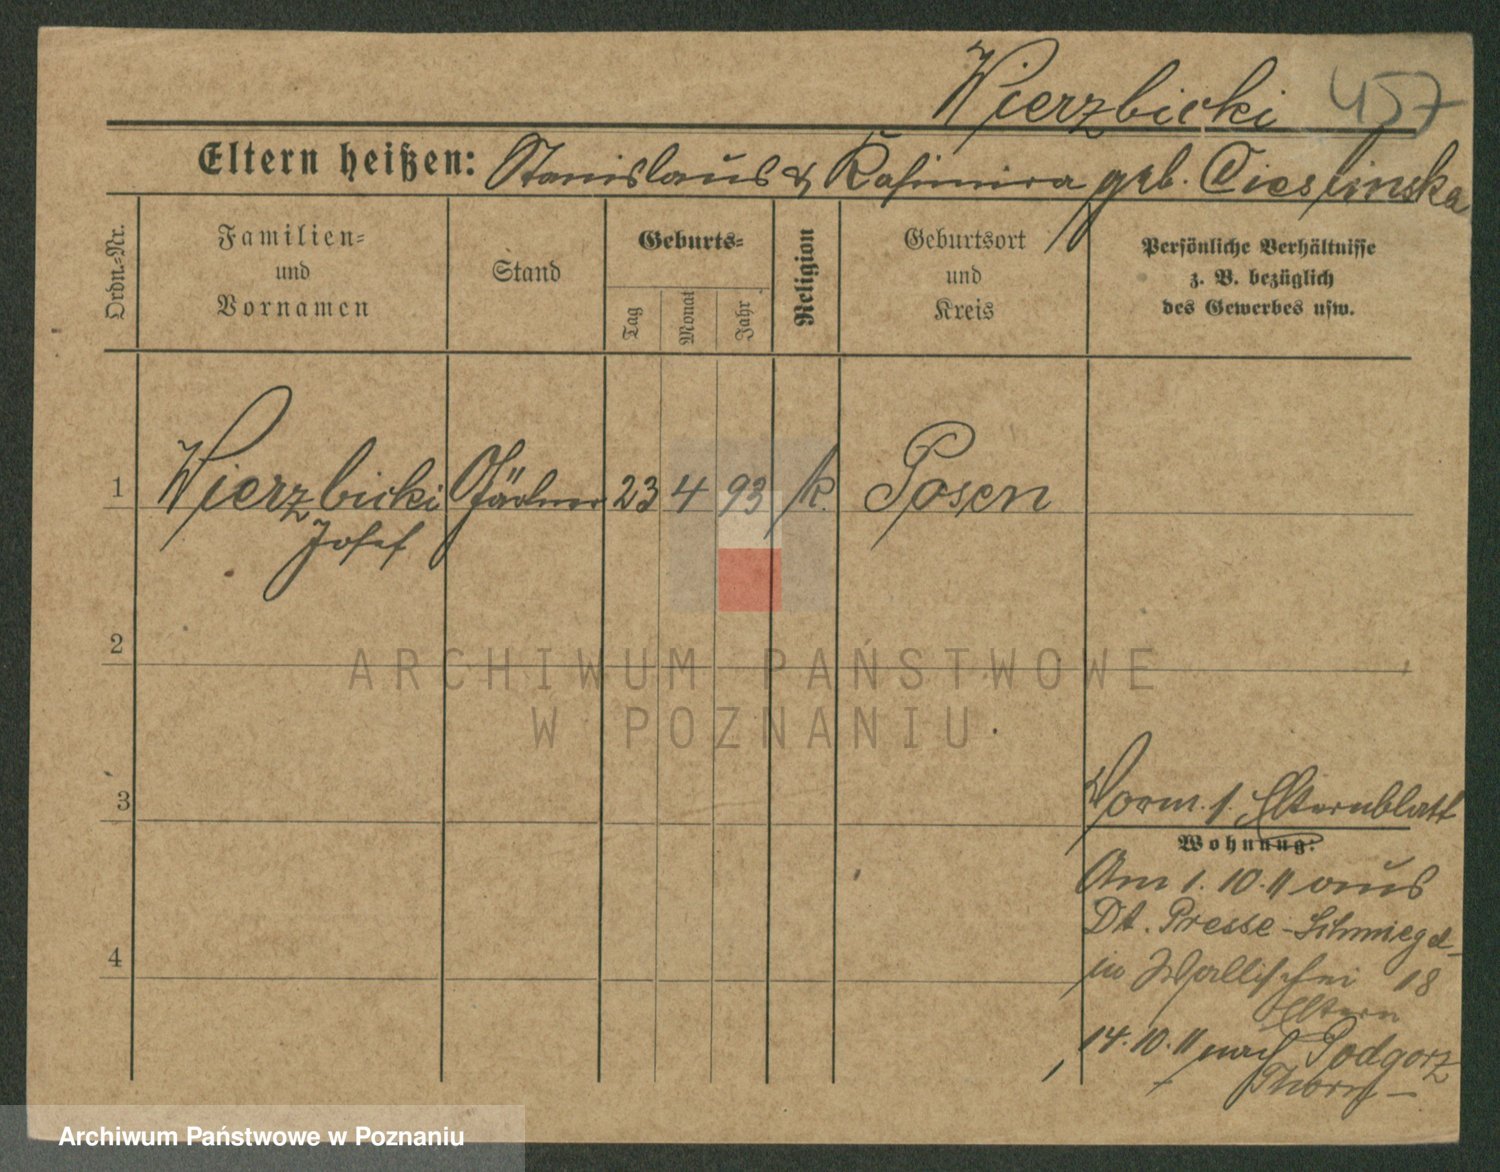 Wierzbicki 457
Eltern heißen: Stanislaus & Kasimira geb. Cieslinska
Ordn.-Nr.
Familien-
und
Vornamen
Stand
Geburts-
Tag
Monat
Jahr
Religion
Geburtsort
und
Kreis
Persönliche Verhältnisse
z. B. bezüglich
des Gewerbes usw.
1 Wierzbicki Gärtner 23 4 93 k. Posen
Josef
2
3
Vorm. s. Elternblatt
Wohnung:
Am 1.10.11 aus
Dt. Presse - Schmiegel
in Wallischei 18
Eltern
4
14.10.11 nach Podgorz
Thorn
ARCHIWUM PAŃSTWOWE
W POZNANIU
Archiwum Państwowe w Poznaniu